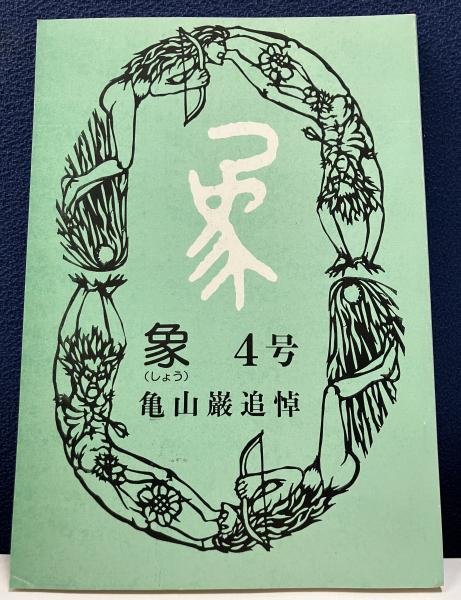 象
象 4号
(しょう)
亀山巌追悼